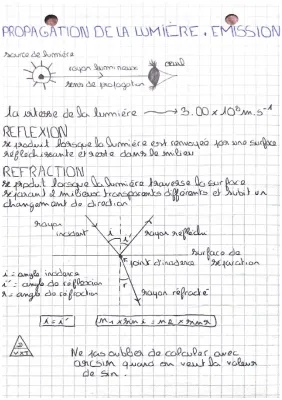 PROPAGATION DE LA LUMIÈRE, EMISSION
source de lumière
rayon lumineux
oeuil
sens de propagation
la vitesse de la lumière → 3.00 x 10⁸ m.s⁻¹
REFLEXION
se produit lorsque la lumière est renvoyée par une surface
réfléchissante et reste dans le milieu
REFRACTION
se produit lorsque la lumière traverse la surface
séparant 2 milieux transparents différents et subit un
changement de direction
rayon
incident
i
i'
rayon réfléchi
surface de
séparation
point d'incidence
i = angle incidence
i' = angle de réflexion
r = angle de réfraction
r
rayon réfracté
i = i'
n1 x sin i = n2 x sin r
Ne pas oublier de calculer avec
arcsin quand on veut la valeur
de sin.